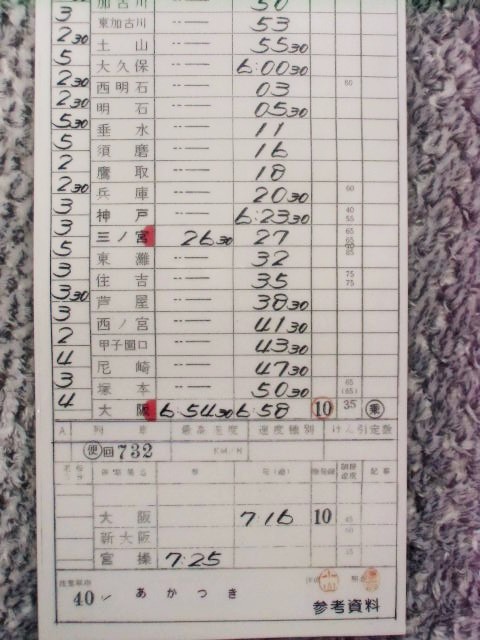 3 加古川 50
東加古川 53
2 30 土山 55 30
5 大久保 6:00 30
2 30 西明石 03
2 30 明石 05 30
5 30 垂水 11
5 須磨 16
2 鷹取 18
2 30 兵庫 20 30 60
3 神戸 6:23 30 40 55
3 三ノ宮 26 30 27 65 65 70
5 東灘 32 65
3 住吉 35 75 75
3 30 芦屋 38 30
3 西ノ宮 41 30
2 甲子園口 43 30
4 尼崎 47 30
3 塚本 50 30 65 (65)
4 大阪 6:54 30 6:58 10 35 乗
A 列車 最高速度 速度種別 けん引定数
便 回732
着 発(通) 着発線 制限速度 記事
大阪 7:16 10
新大阪
宮操 7:25
40 あかつき
参考資料